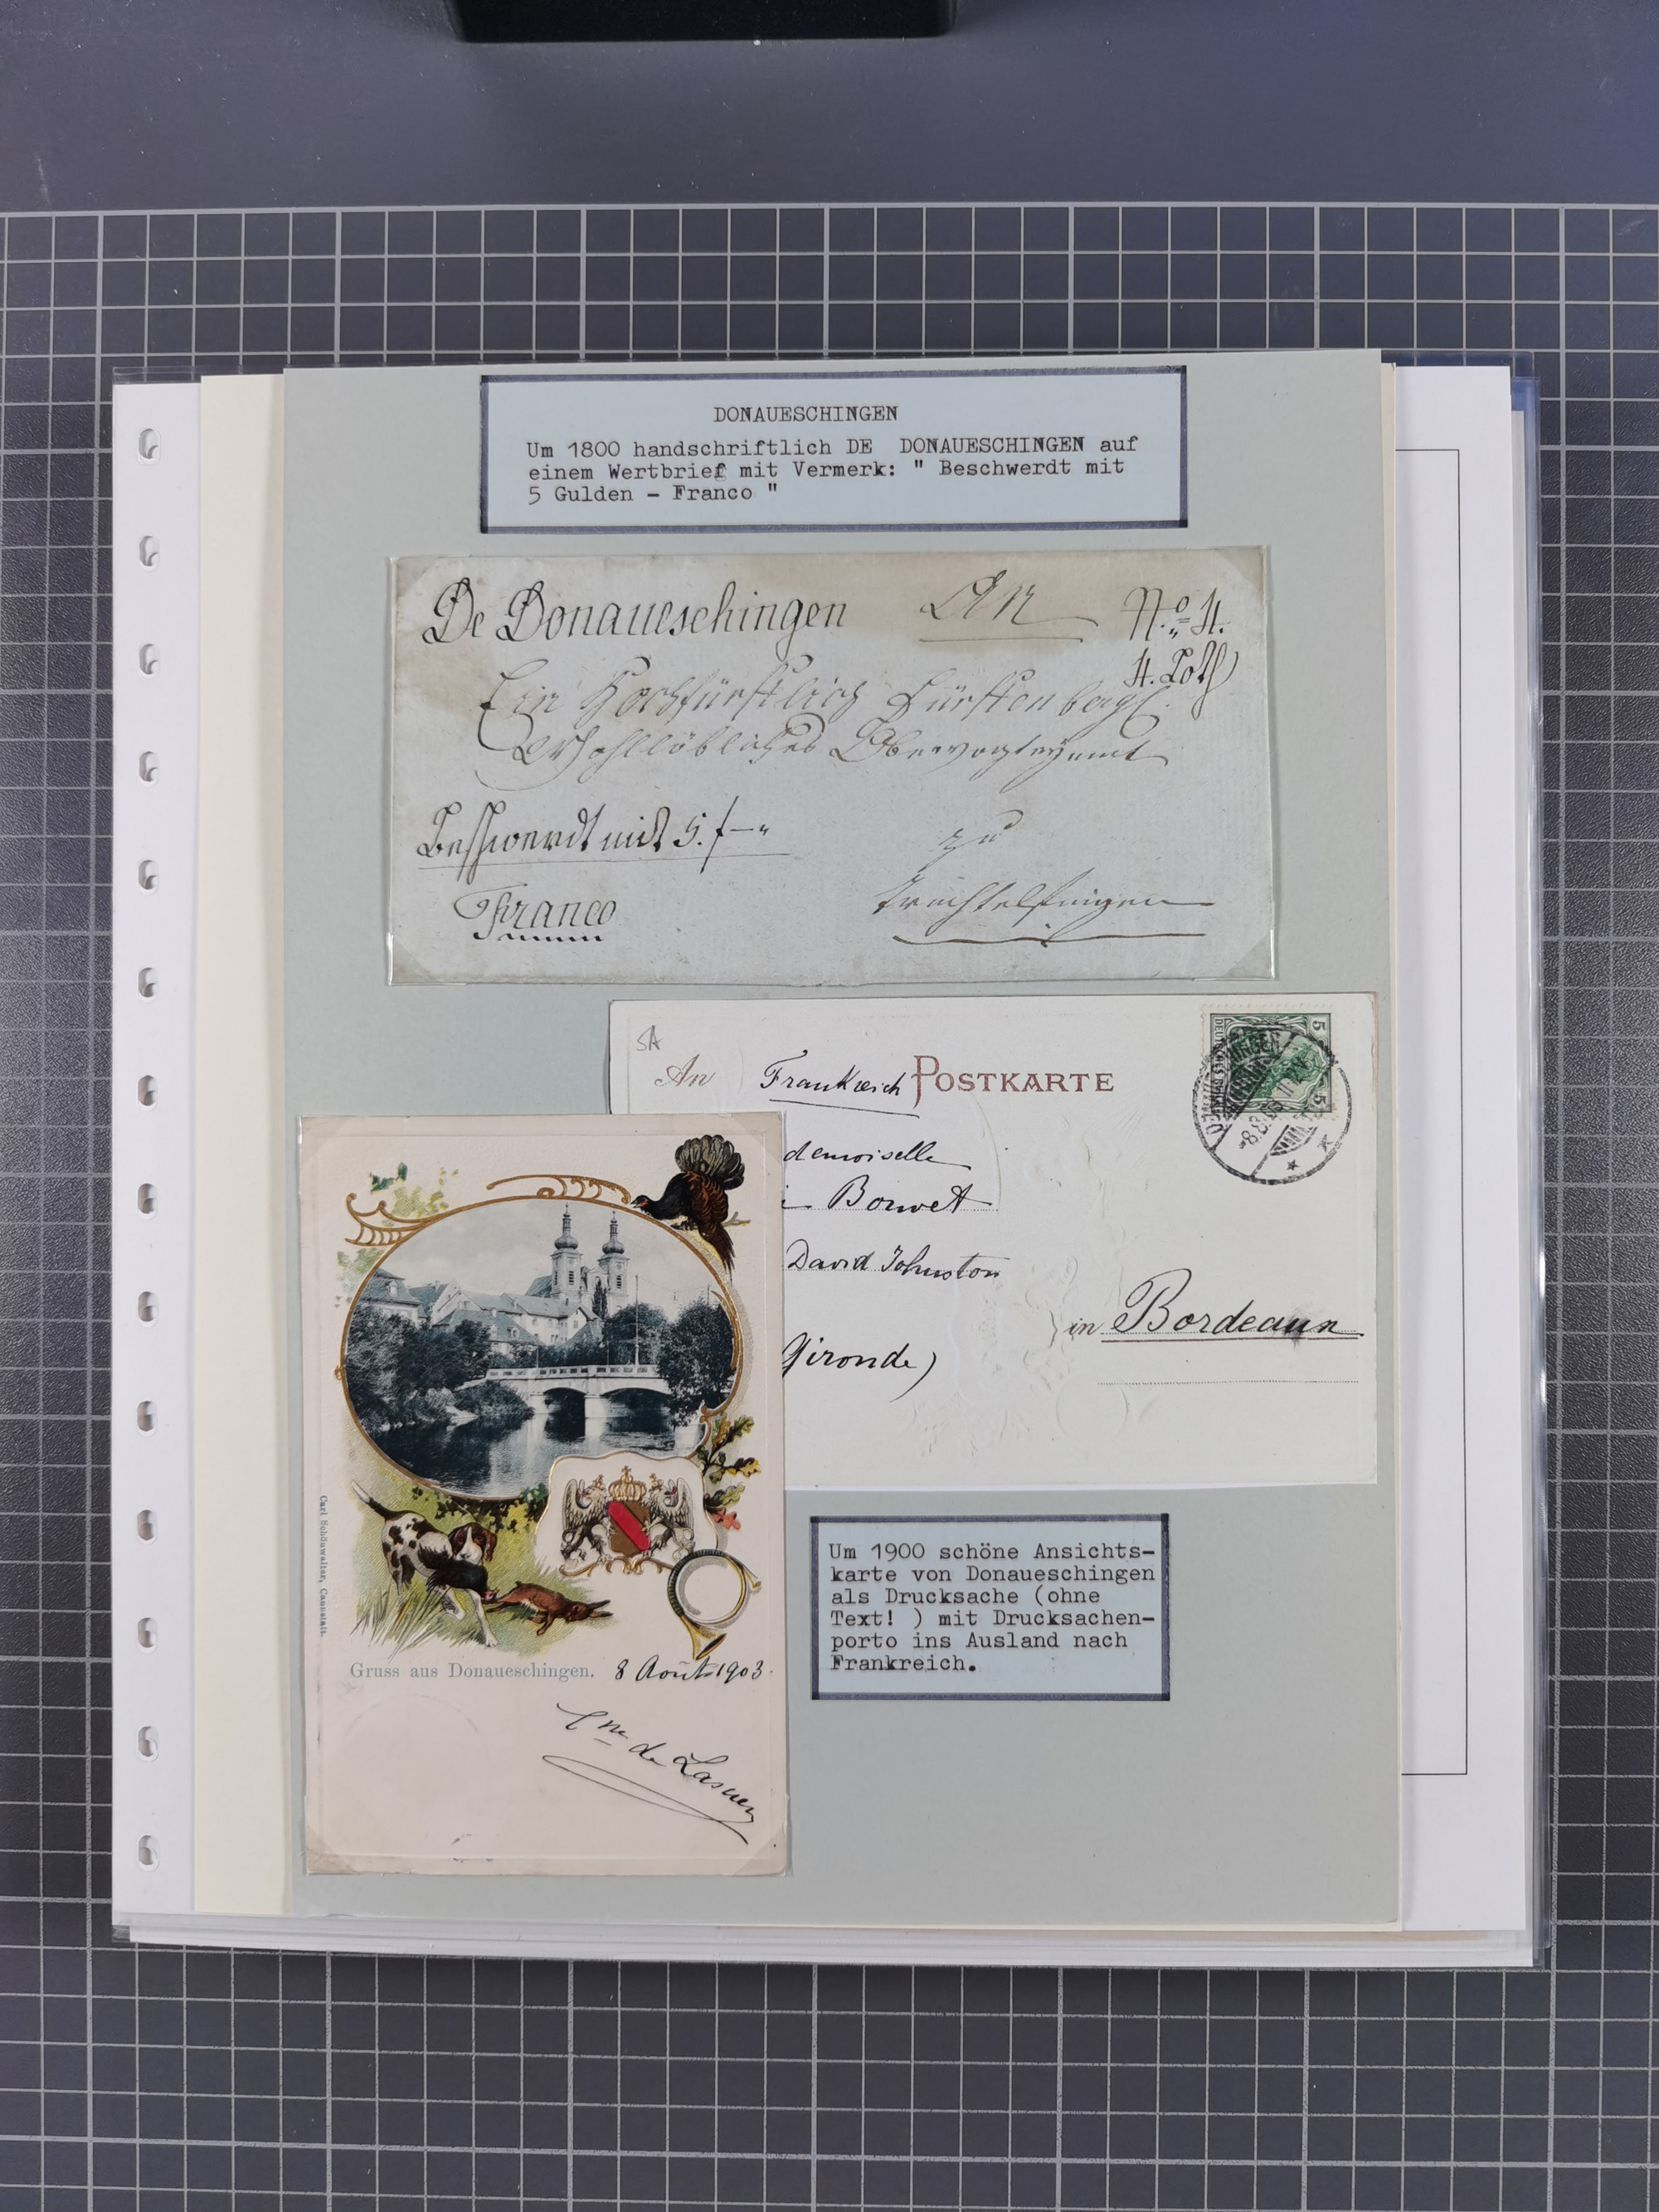 DONAUESCHINGEN
Um 1800 handschriftlich DE DONAUESCHINGEN auf
einem Wertbrief mit Vermerk: " Beschwerdt mit
5 Gulden - Franco "
De Donaueschingen An N.o 4.
4. Loth
Ein Hochfürstlich Fürstenbergl.
Wohllöbliches Obervogteyamt
Beschwerdt mit 5. f
zu
Franco
Trochtelfingen
SA
An Frankreich POSTKARTE
demoiselle
Bouvet
David Johnston
in Bordeaux
Gironde)
5
5
Carl Schönwalter, Cannstatt.
Gruss aus Donaueschingen. 8 Août 1903.
de
Um 1900 schöne Ansichts-
karte von Donaueschingen
als Drucksache (ohne
Text! ) mit Drucksachen-
porto ins Ausland nach
Frankreich.